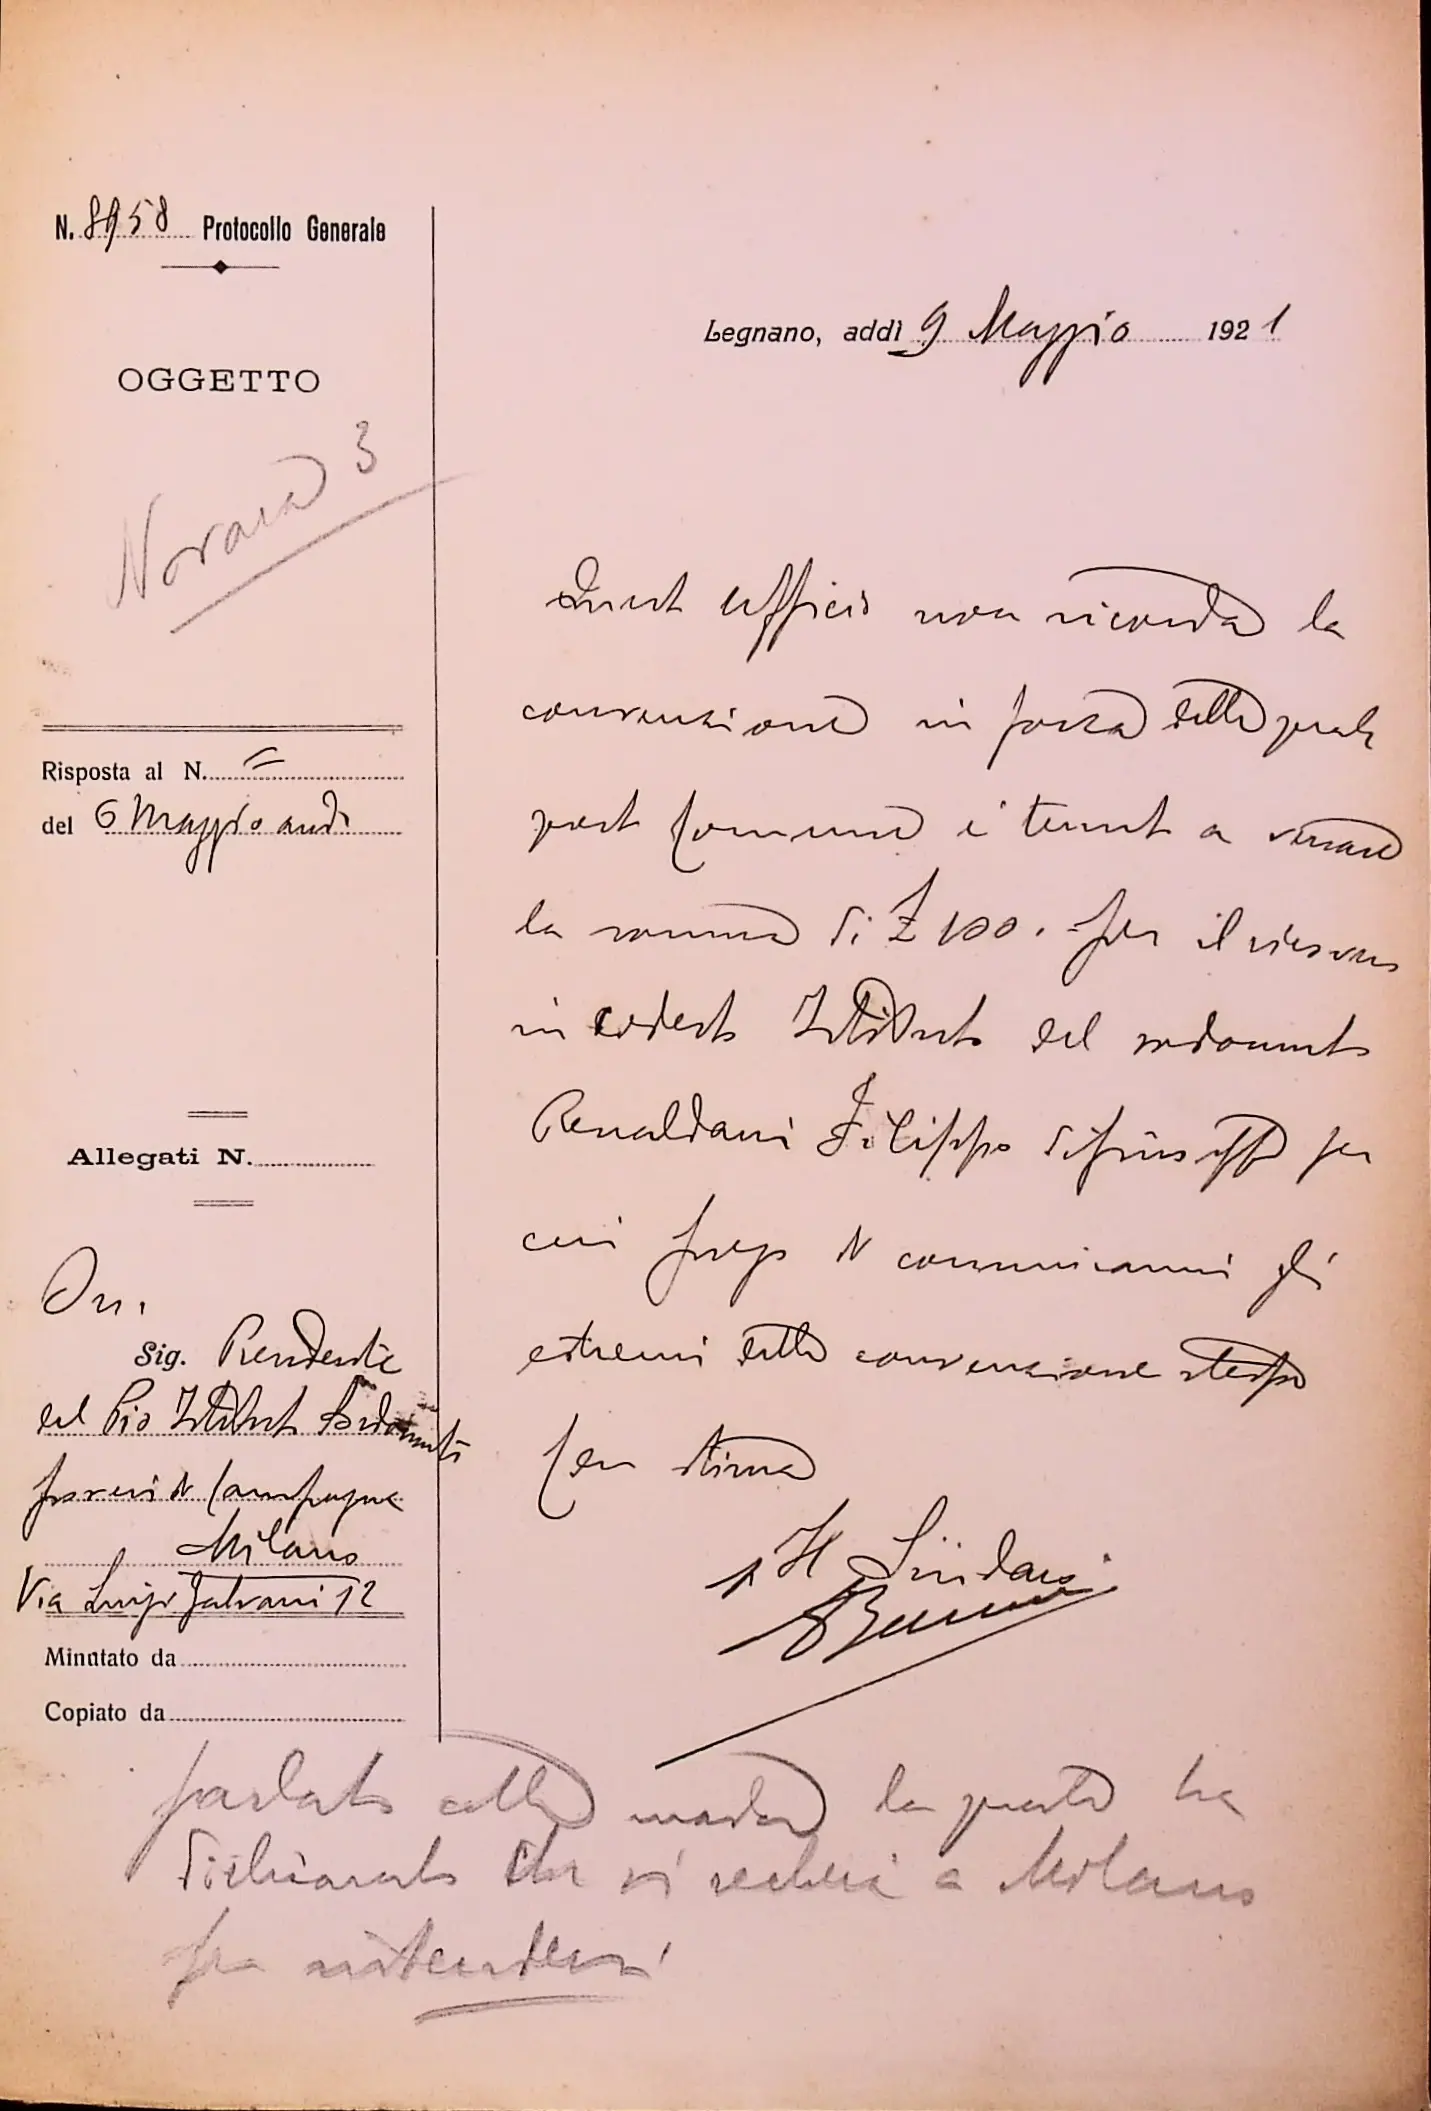 N. 8958 Protocollo Generale
OGGETTO
Novara 3
Risposta al N. =
del 6 Maggio and.
Allegati N.
On.
Sig. Presidente
del Pio Istituto Sordomuti
poveri di Campagna
Milano
Via Luigi Galvani 12
Minutato da
Copiato da
Legnano, addì 9 Maggio 1921
Quest ufficio non ricorda la
convenzione in forza della quale
questo Comune è tenuto a versare
la somma di £ 100. per il ricovero
in codesto Istituto del sordomuto
Renaldani Filippo di Giuseppe per
cui prego di comunicarmi gli
estremi della convenzione stessa
Con stima
Il Sindaco
parlato colla madre la quale ha
dichiarato che si recherà a Milano
per intendersi